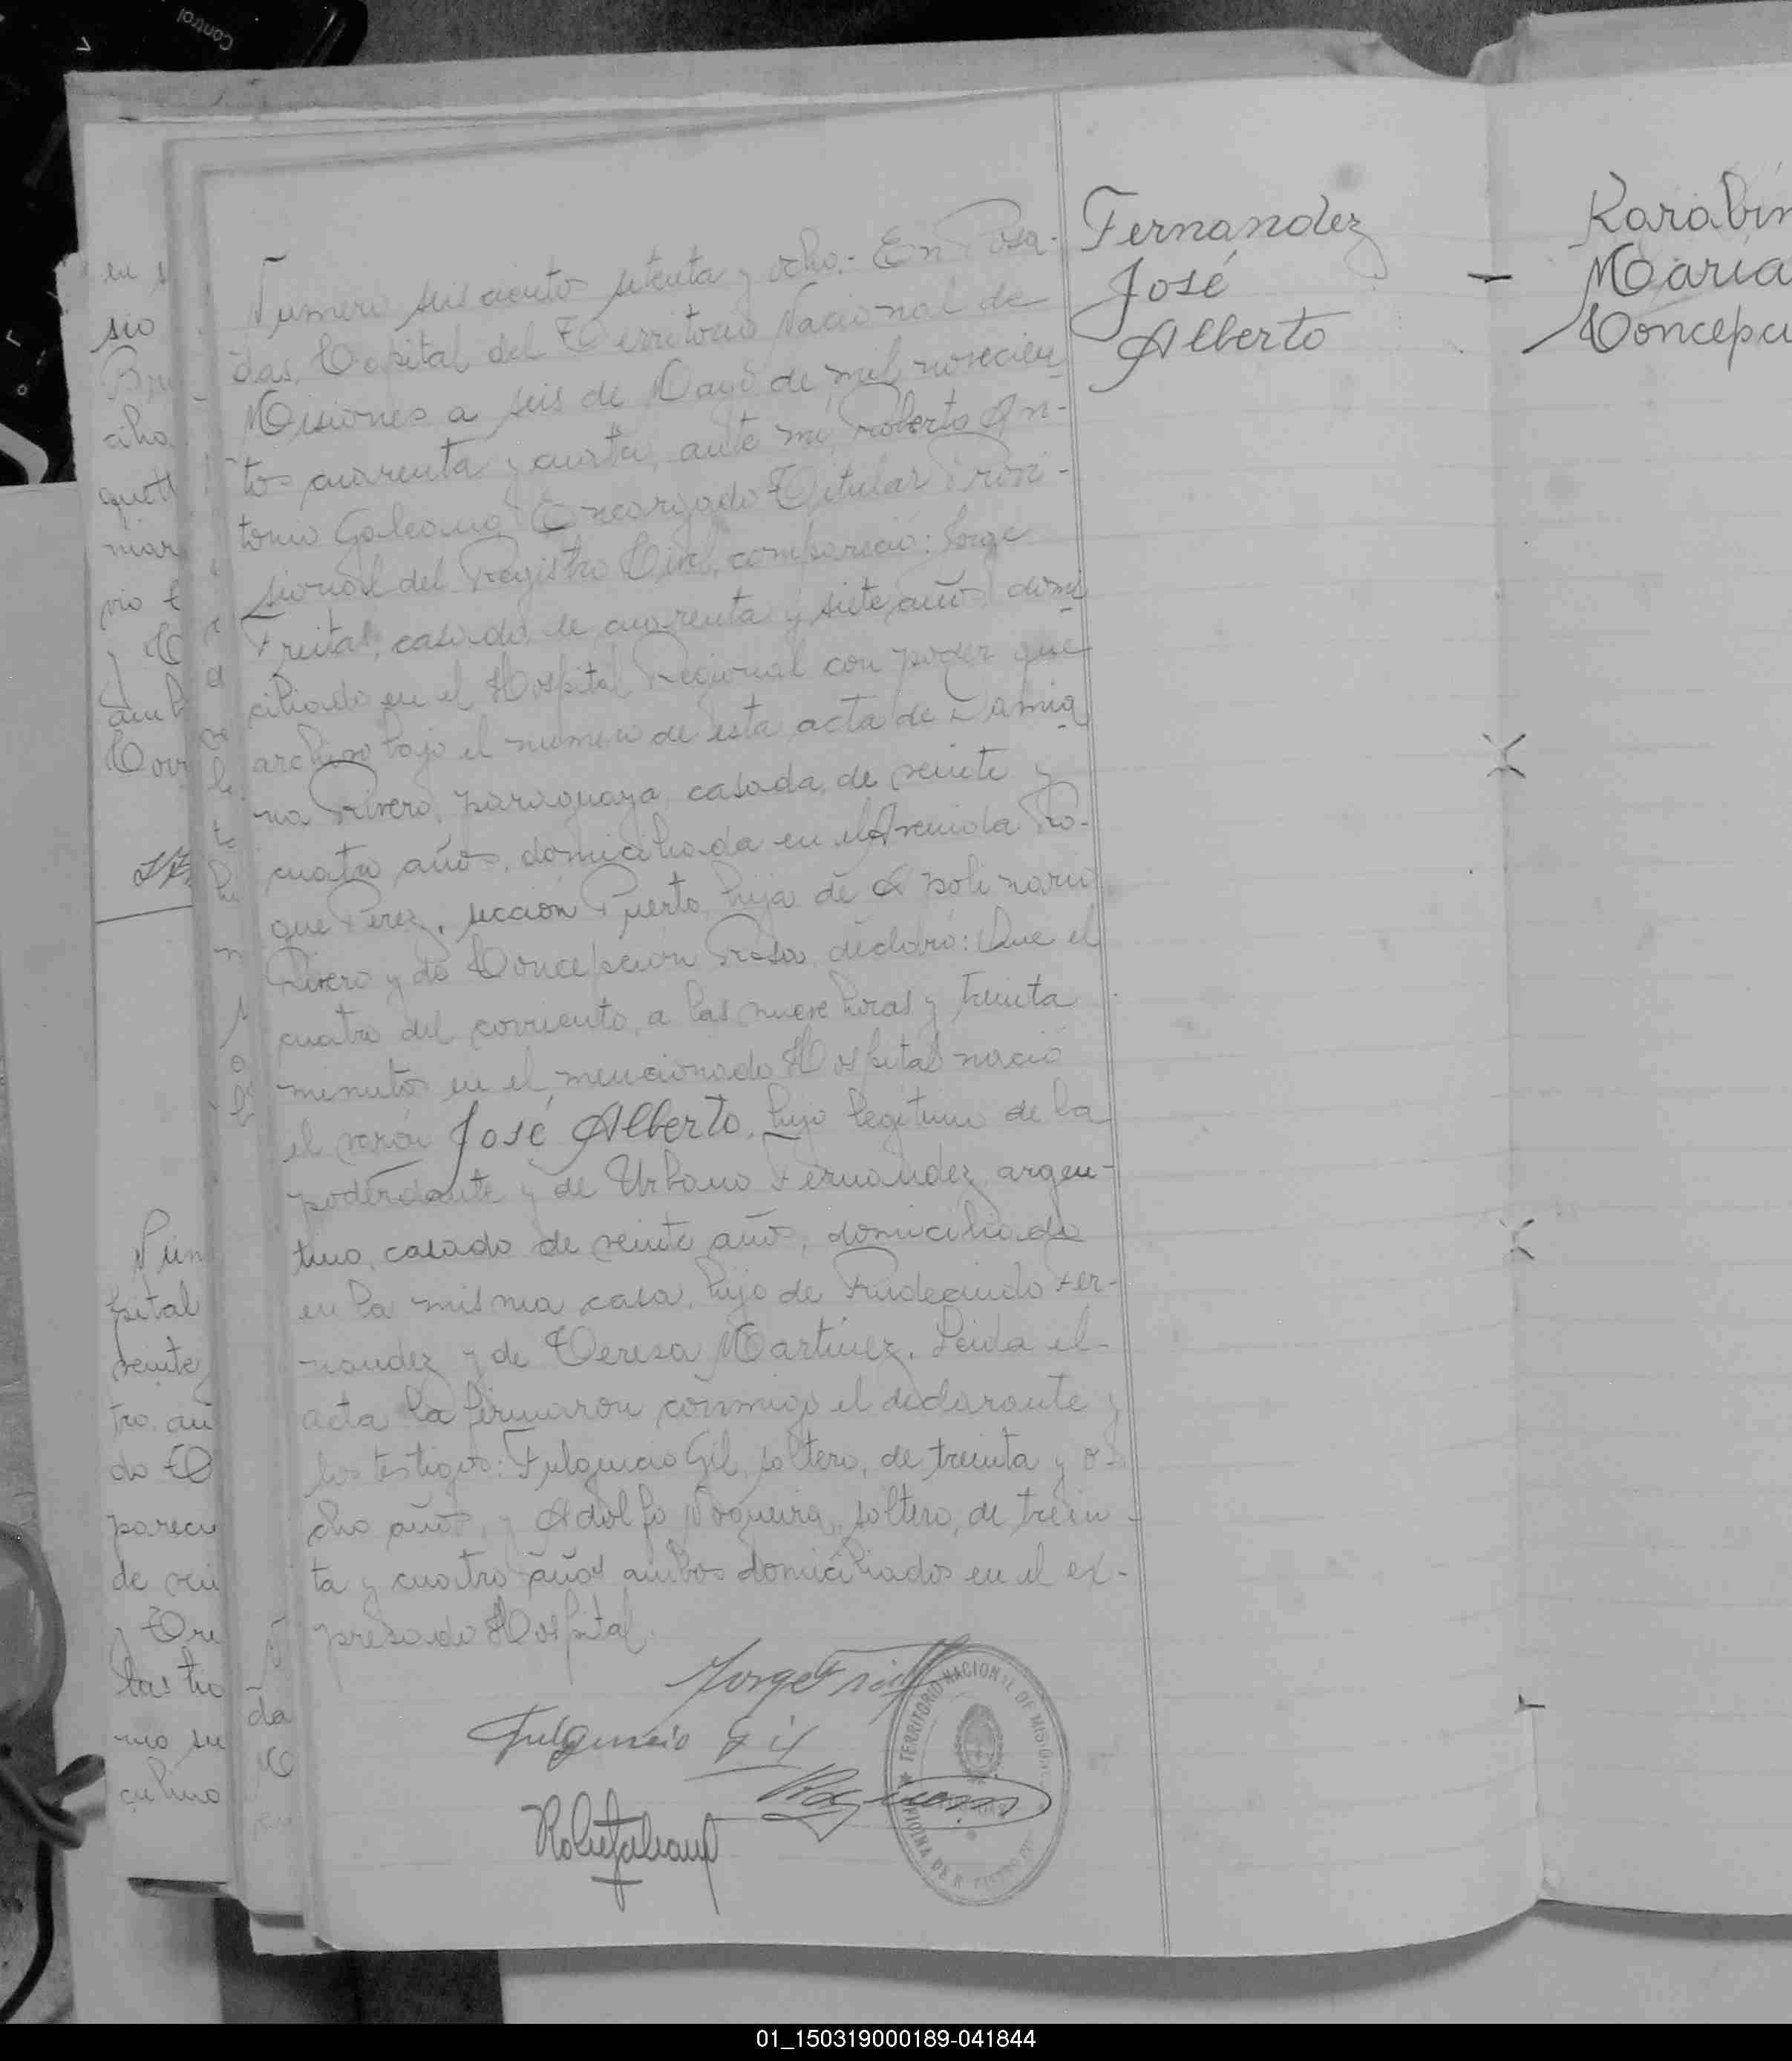 Control
Fernandez
José
Alberto
Karabin
Maria
Concepci
Numero seiscientos setenta y ocho.- En Posa-
das, Capital del Territorio Nacional de
Misiones a seis de Mayo de mil novecien
tos cuarenta y cuatro, ante mi, Roberto An-
tonio Galeano Encargado Titular Provi-
sional del Registro Civil, compareció: Jorge
Freitas, casado, de cuarenta y siete años, domi
ciliado en el Hospital Regional con poder que
archivo bajo el numero de esta acta de Damia
na Rivero, paraguaya, casada, de veinte y
cuatro años, domiciliada en el Avenida Ro-
que Perez, sección Puerto, hija de Apolinario
Rivero y de Concepción Rosa, declaró: Que el
cuatro del corriente, a las nueve horas y treinta
minutos en el mencionado Hospital nació
el varón José Alberto, hijo legitimo de la
poderdante y de Urbano Fernandez, argen-
tino, casado de veinte años, domiciliado
en la misma casa, hijo de Rudecindo Fer-
nandez y de Teresa Martinez. Leida el
acta la firmaron conmigo el declarante y
los testigos: Fulgencio Gil, soltero, de treinta y o-
cho años, y Adolfo Nogueira, soltero, de trein-
ta y cuatro años ambos domiciliados en el ex-
presado Hospital.
Jorge Freitas
Fulgencio Gil
TERRITORIO NACIONAL DE MISIONES
OFICINA DE R
01_150319000189-041844